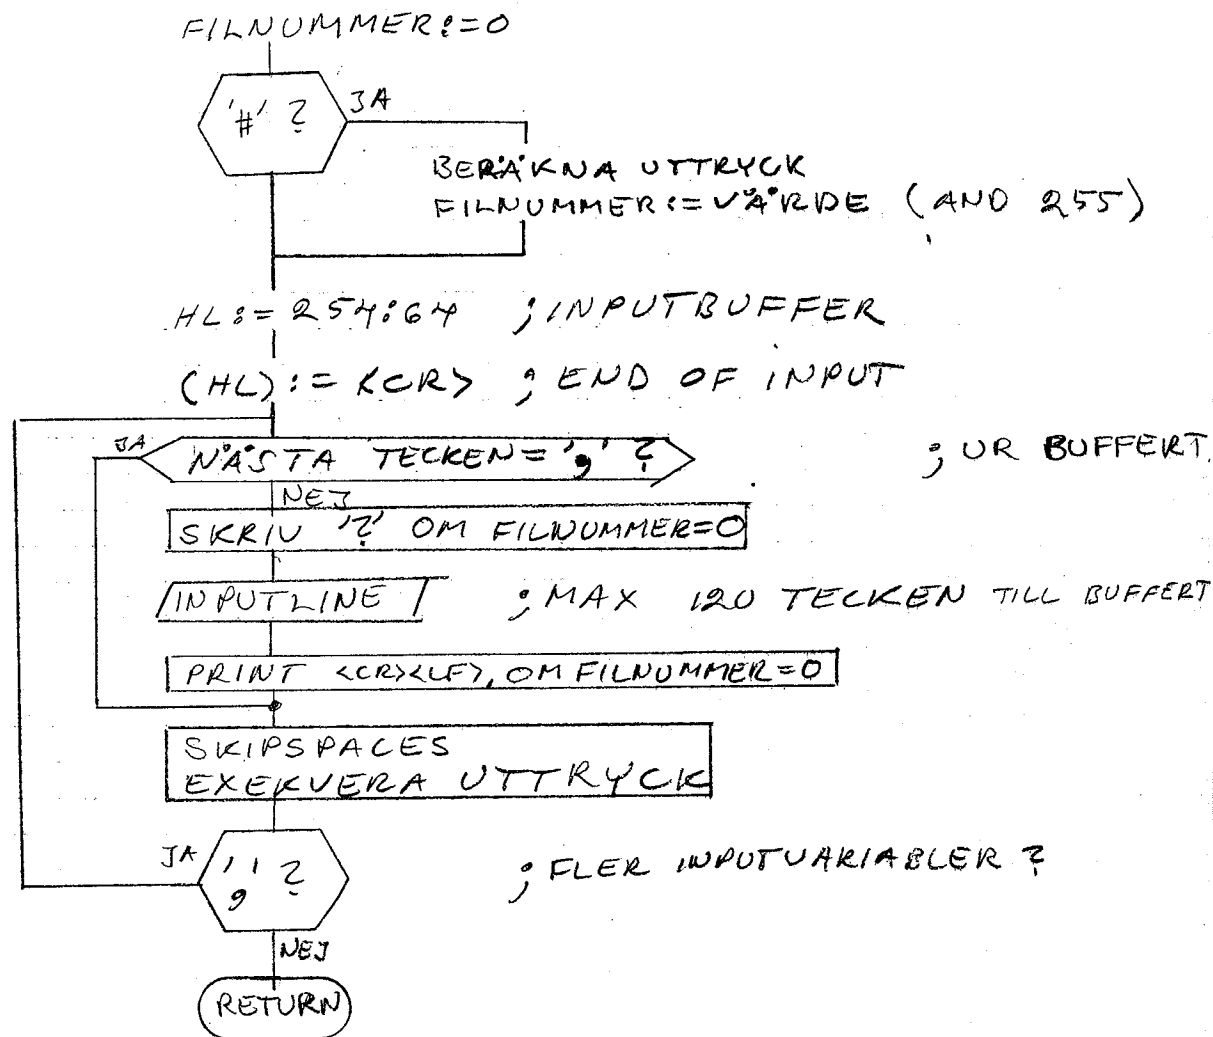 FILNUMMER:=0
'#' ?
JA
BERÄKNA UTTRYCK
FILNUMMER:=VÄRDE (AND 255)
HL:=254:64 ;INPUTBUFFER
(HL):=<CR> ; END OF INPUT
JA
NÄSTA TECKEN=',' ? ; UR BUFFERT
NEJ
SKRIV '?' OM FILNUMMER=0
INPUTLINE ;MAX 120 TECKEN TILL BUFFERT
PRINT <CR><LF>, OM FILNUMMER=0
SKIPSPACES
EXEKVERA UTTRYCK
JA
',' ? ;FLER INPUTVARIABLER ?
NEJ
RETURN